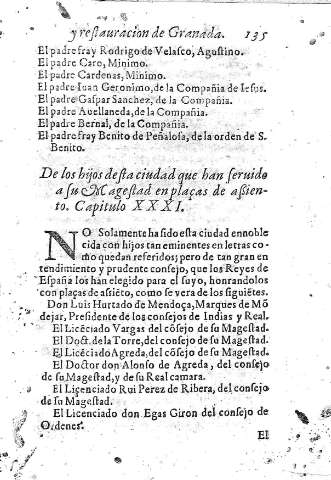 y restauracion de Granada. 135
El padre fray Rodrigo de Velasco, Agustino.
El padre Caro, Minimo.
El padre Cardenas, Minimo.
El padre Iuan Geronimo, de la Compañia de Iesus.
El padre Gaspar Sanchez, de la Compañia.
El padre Auellaneda, de la Compañia.
El padre Bernal, de la Compañia.
El padre fray Benito de Peñalosa, de la orden de S.
Benito.
De los hijos desta ciudad que han seruido
a su Magestad en plaças de assien-
to. Capitulo XXXI.
NO Solamente ha sido esta ciudad ennoble
cida con hijos tan eminentes en letras co-
mo quedan referidos; pero de tan gran en-
tendimiento y prudente consejo, que los Reyes de
España los han elegido para el suyo, honrandolos
con plaças de assiẽto, como se vera de los siguiẽtes.
Don Luis Hurtado de Mendoça, Marques de Mõ
dejar, Presidente de los consejos de Indias y Real.
El Licẽciado Vargas del cõsejo de su Magestad.
El Doct. de la Torre, del consejo de su Magestad.
El Licẽciado Agreda, del cõsejo de su Magestad.
El Doctor don Alonso de Agreda, del consejo
de su Magestad, y de su Real camara.
El Liçenciado Rui Perez de Ribera, del consejo
de su Magestad.
El Licenciado don Egas Giron del consejo de
Ordenes.
El